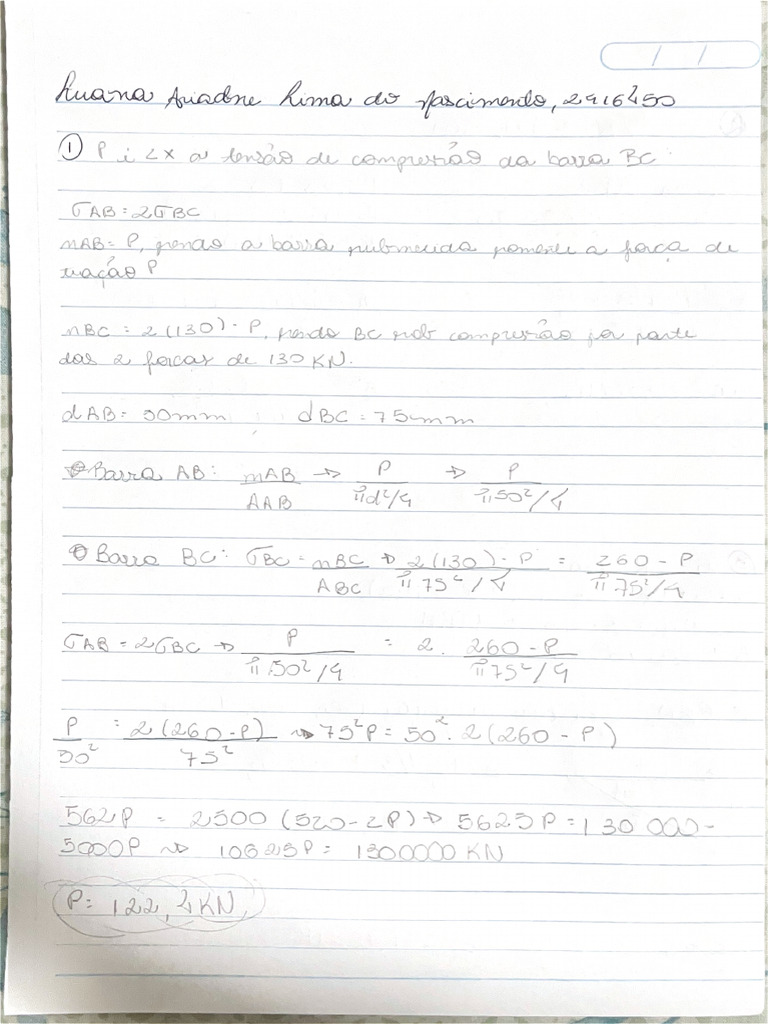 Luana Ariadne Lima do Nascimento, 2416450
① P i 2x a tensão de compressão da barra BC:
σAB = 2σBC
nAB = P, sendo a barra submetida somente a força de
tração P
nBC = 2(130) - P, sendo BC sob compressão por parte
das 2 forças de 130 KN.
dAB = 50mm dBC = 75mm
Barra AB: nAB/AAB → P/πd²/4 → P/π50²/4
Barra BC: σBC = nBC/ABC → 2(130) - P/π75²/4 = 260 - P/π75²/4
σAB = 2σBC → P/π50²/4 = 2 . 260 - P/π75²/4
P/50² = 2(260 - P)/75² → 75²P = 50² . 2(260 - P)
562P = 2500 (520 - 2P) → 5625P = 130 000 -
5000P → 10625P = 1300000 KN
P = 122,4KN